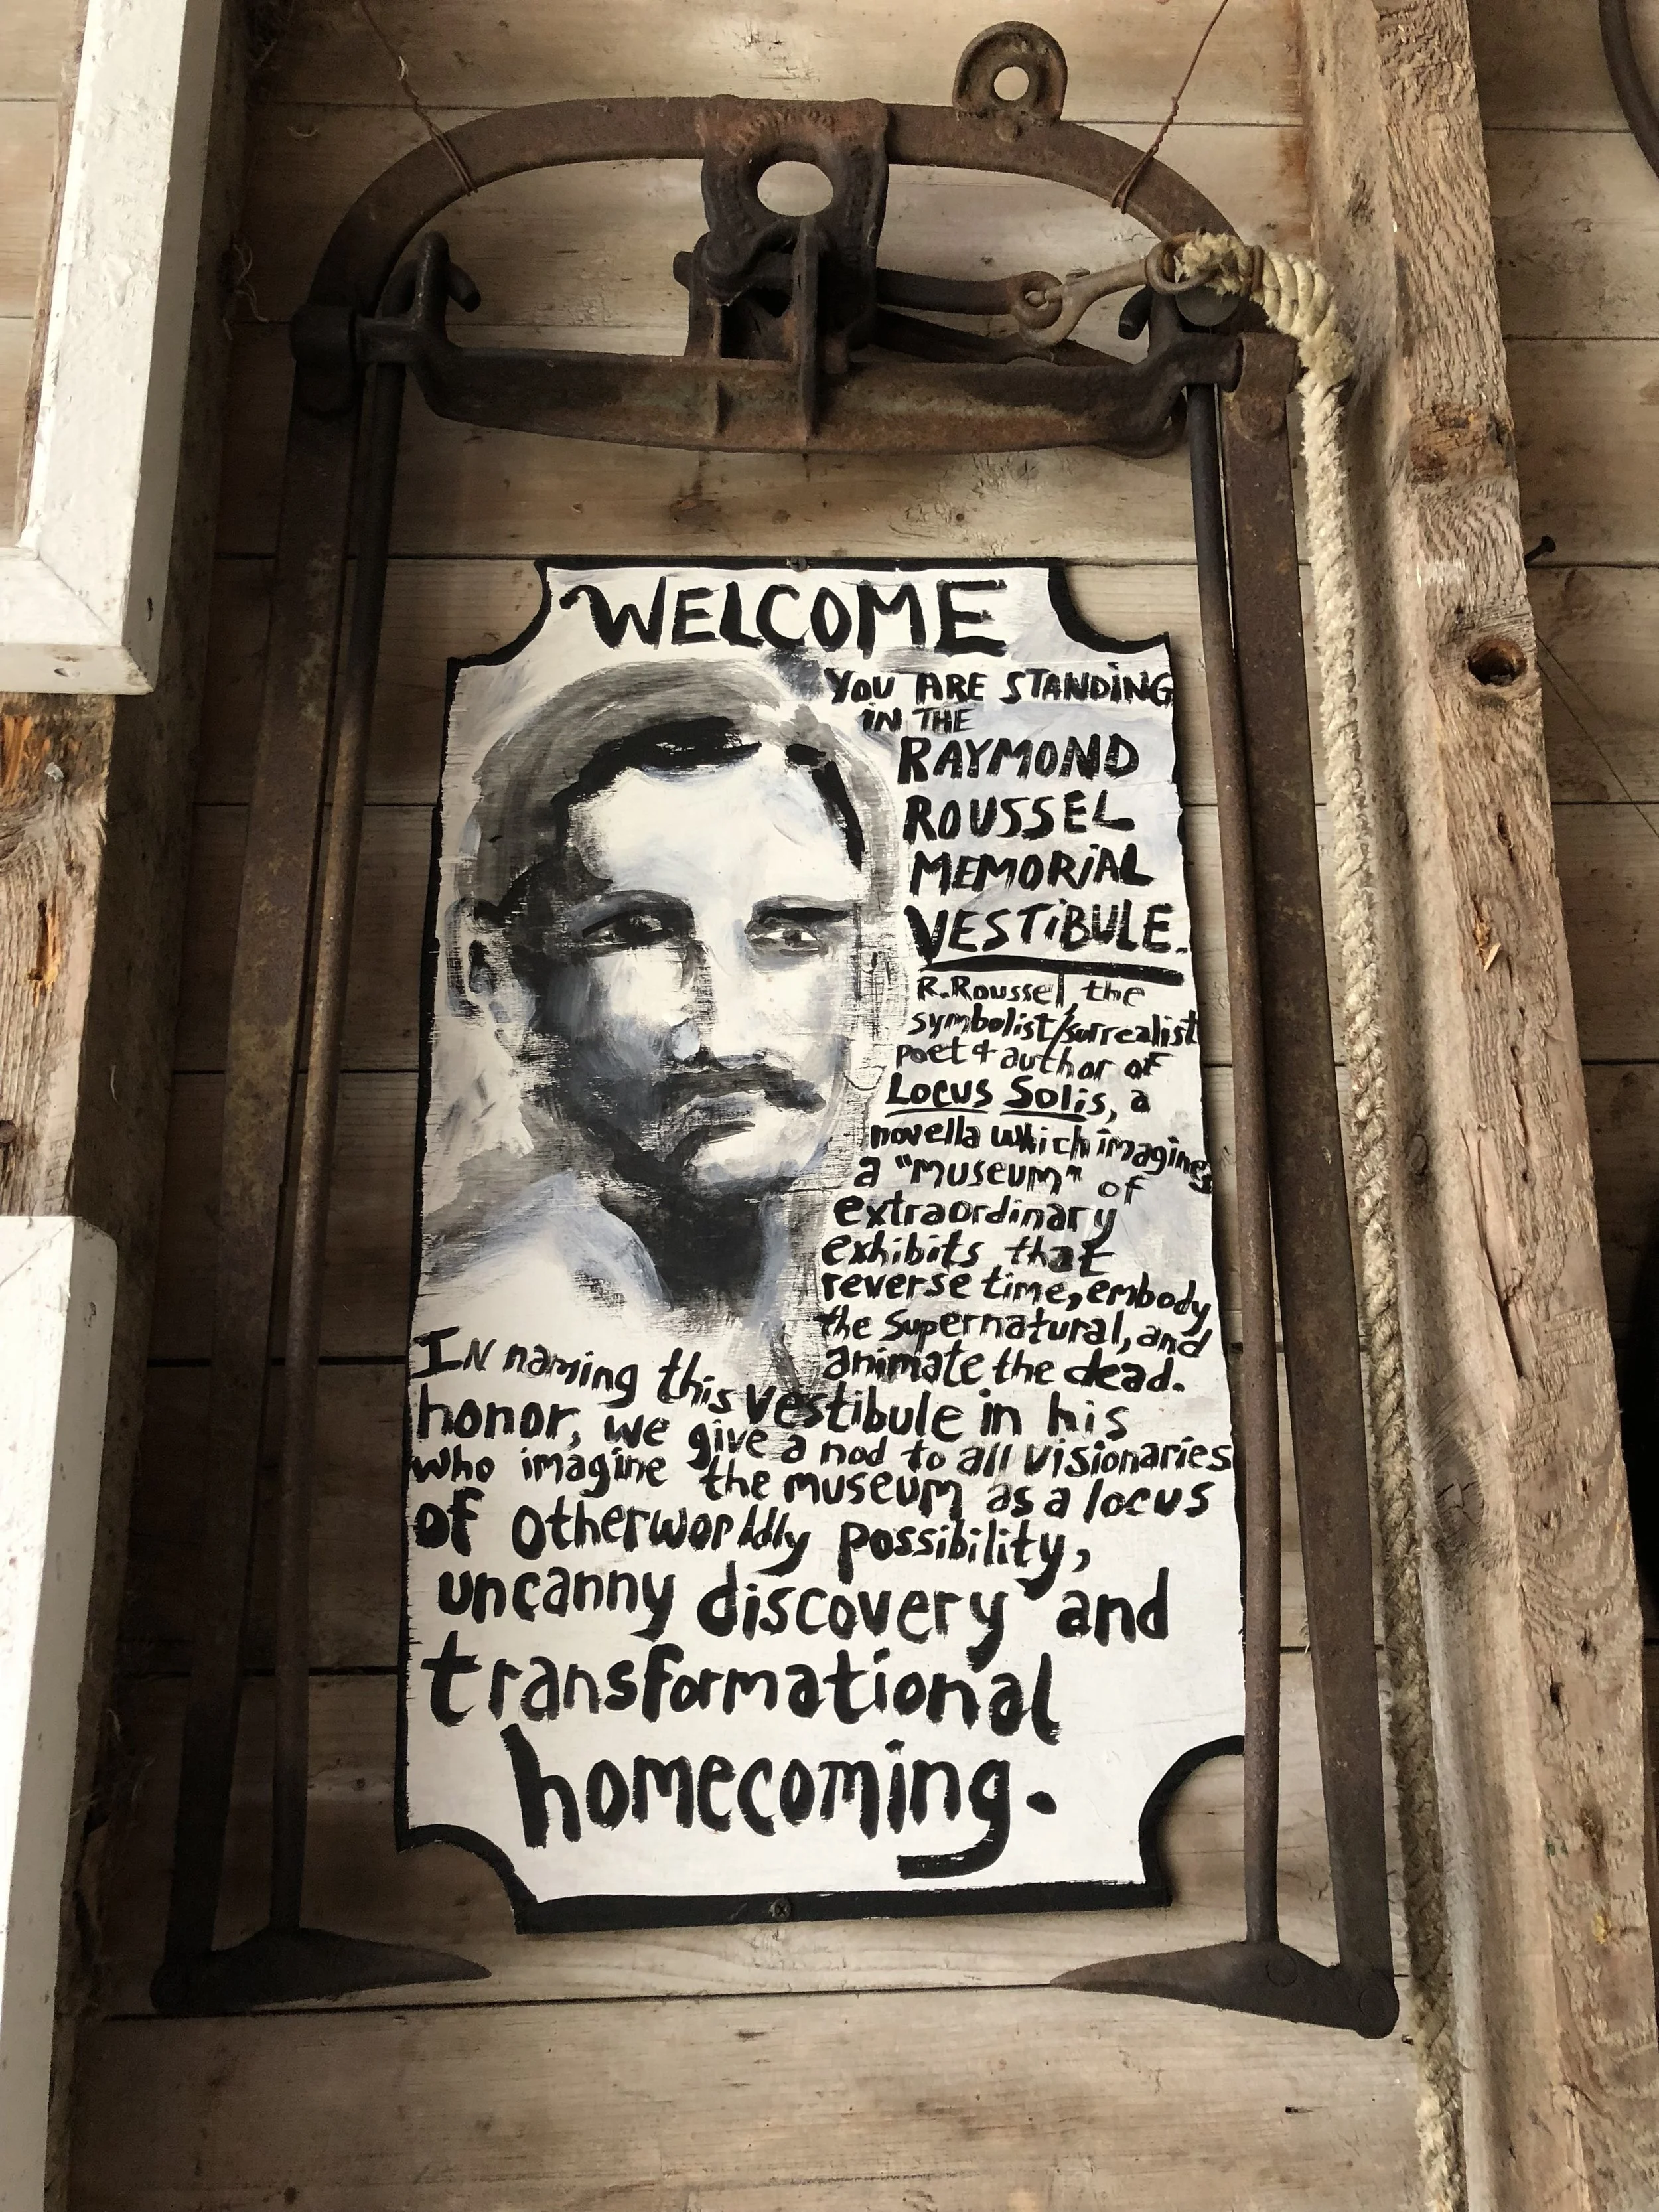 WELCOME
YOU ARE STANDING
IN THE
RAYMOND
ROUSSEL
MEMORIAL
VESTIBULE.
R. Roussel, the
symbolist/surrealist
poet & author of
Locus Solis, a
novella which imagines
a "museum" of
extraordinary
exhibits that
reverse time, embody
the supernatural, and
animate the dead.
IN naming this vestibule in his
honor, we give a nod to all visionaries
who imagine the museum as a locus
of otherworldly possibility,
uncanny discovery and
transformational
homecoming.